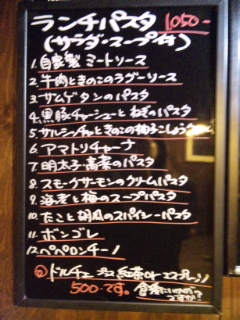 ランチパスタ 1,050-
(サラダ・スープ付)
1. 自家製ミートソース
2. 牛肉ときのこのラグーソース
3. サムゲタンのパスタ
4. 黒豚チャーシューとねぎのパスタ
5. サルシッチャときのこの柚子こしょう
6. アマトリチャーナ
7. 明太子・高菜のパスタ
8. スモークサーモンのクリームパスタ
9. 海老と梅のスープパスタ
10. たこと胡瓜のスパイシーパスタ
11. ボンゴレ
12. ペペロンチーノ
ドルチェ 紅茶orエスプレッソ
500-です。食後にいかがですか?